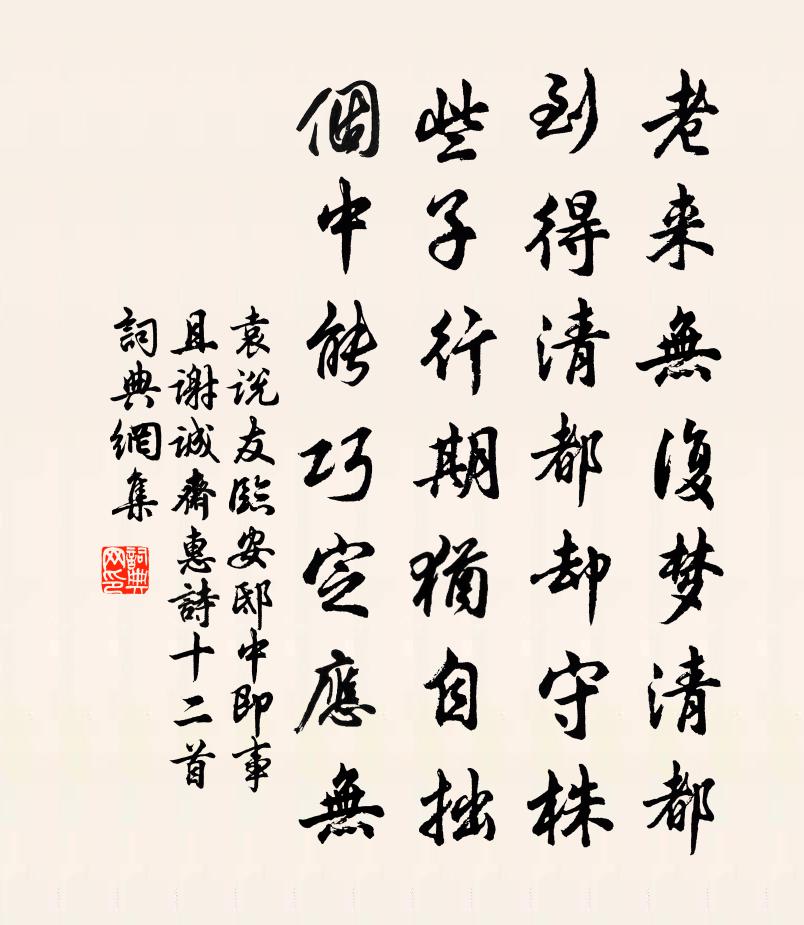 老来無復梦清都
到得清都却守株
些子行期猶自拙
個中能巧定應無
袁说友臨安邸中即事
且谢诚斋惠詩十二首
詞典網集
詞典网印